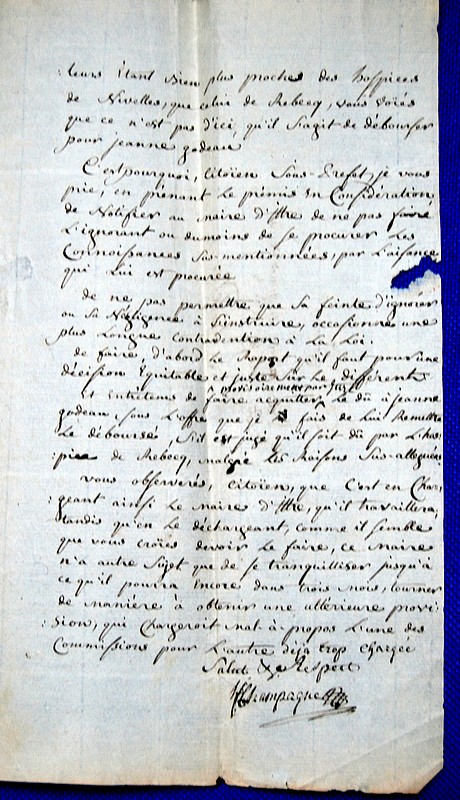 :teurs Étant bien plus proches des hospices
de Nivelles, que celui de Rebecq, vous voiés
que ce n'est pas d'ici, qu'il s'agit de débourser
pour jeanne godeau
C'est pourquoi, Citoïen Sous-Prefet, je vous
prie, en prenant Le prémis En Considération,
de Notifier au maire d'Ittre de ne pas faire
L'ignorant ou dumoins de se procurer Les
Connoissances sus-mentionnées, par L'aisance
qui Lui est procurée
de ne pas permettre que sa feinte d'ignorer
ou sa Négligence à S'instruire, occasionne une
plus Longue contravention à La Loi.
de faire, d'abord Le Raport qu'il faut pour une
décision Equitable et juste sur Le différent
et Entretems de faire acquitter Le dû à jeanne
provisoirement par
godeau, sous L'offre que je fais de Lui Remettre
Le déboursé, s'il est jugé qu'il soit dû par L'hos
:pice de Rebecq, malgré Les Raisons sus-alleguées
vous observerés, Citoïen, que C'est en Char,
geant ainsi Le maire d'Ittre, qu'il travaillera,
tandis qu'en Le déchargeant, comme il semble
que vous croiés devoir Le faire, ce maire
n'a autre sujet que de se tranquilliser jusqu'à
ce qu'il pourra Encore dans trois mois, tourner
de maniére à obtenir une ulterieure provi:
sion, qui Chargeroit mal-à-propos L'une des
Commissions pour L'autre déja trop chargée
Salut & Respect
Champagne